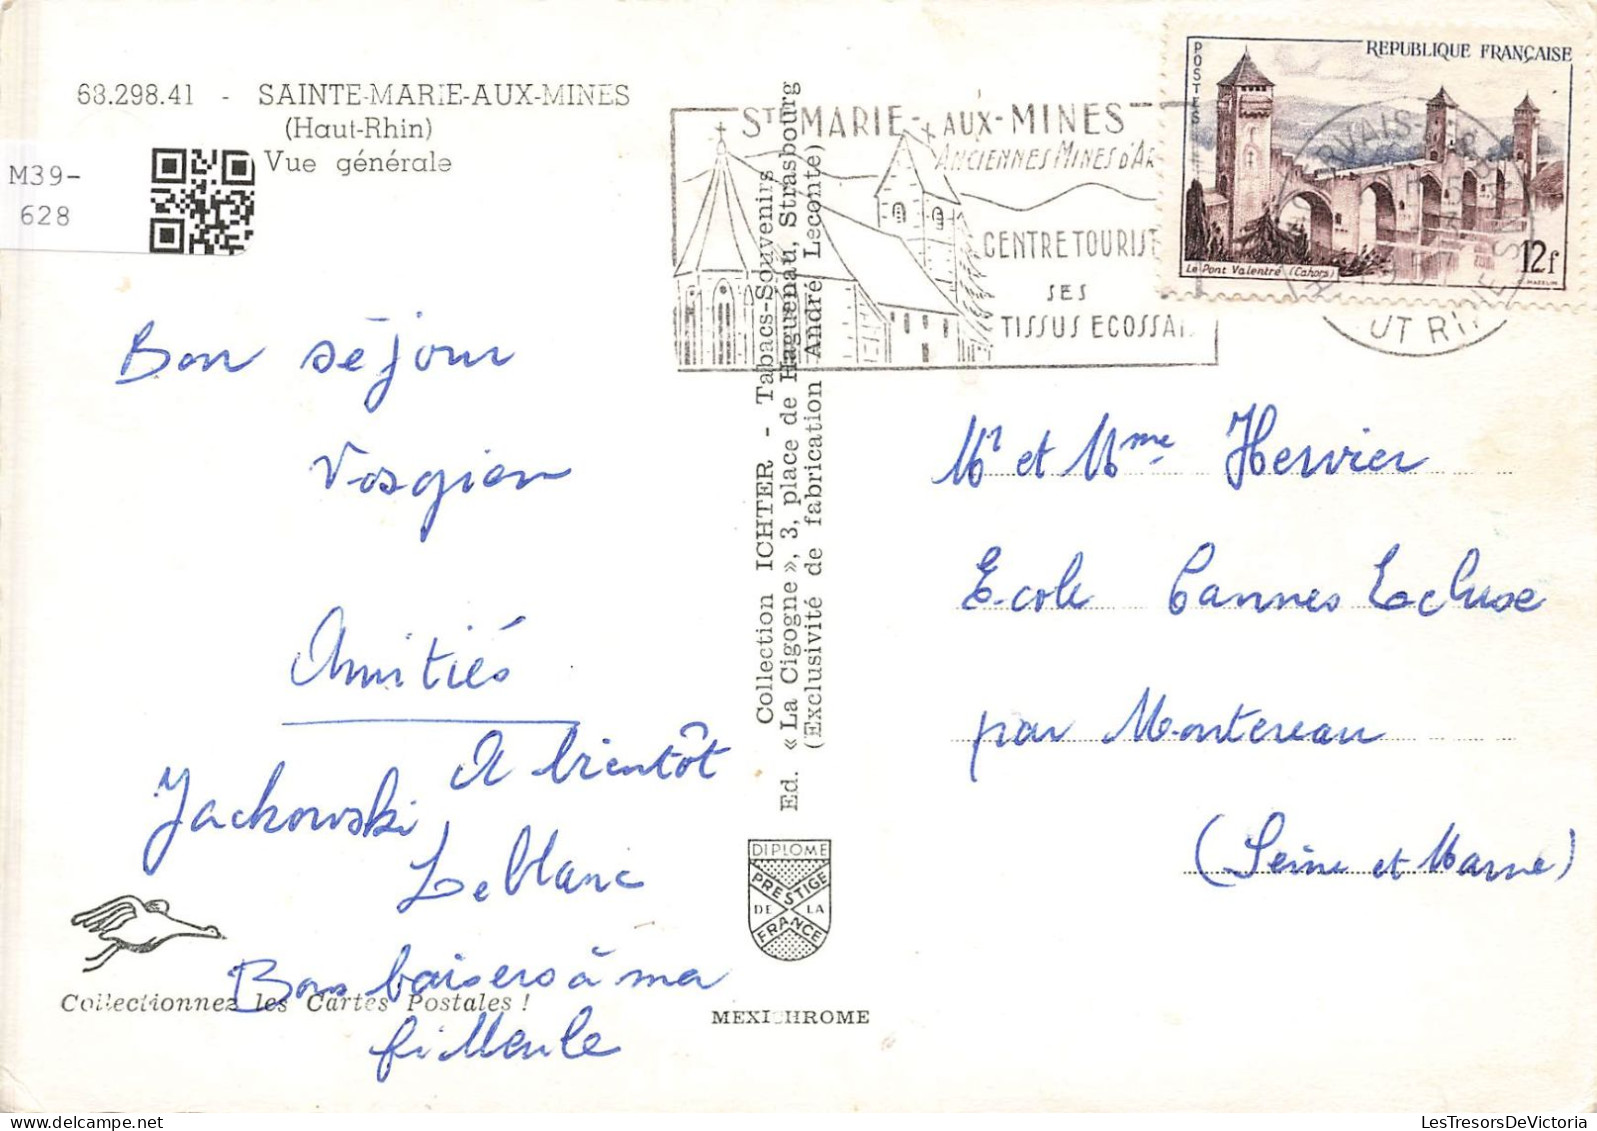 68.298.41 - SAINTE-MARIE-AUX-MINES
(Haut-Rhin)
Vue générale
M39-
628
Bon séjour
Vosgien
Amitiés
A bientôt
Jackowski
Leblanc
Bons baisers à ma
filleule
Collectionnez les Cartes Postales !
Collection ICHTER - Tabacs-Souvenirs
Ed. « La Cigogne », 3, place de Haguenau, Strasbourg
(Exclusivité de fabrication André Leconte)
DIPLOME
PRESTIGE
DE LA
FRANCE
MEXICHROME
STE MARIE-AUX-MINES
ANCIENNES MINES D'AR
CENTRE TOURIST
SES
TISSUS ECOSSAI
POSTES
REPUBLIQUE FRANÇAISE
Le Pont Valentré (Cahors)
12f
MAZELIN
UT RHIN
Mr et Mme Hervier
Ecole Cannes Ecluse
par Montereau
(Seine et Marne)
LesTresorsDeVictoria.com